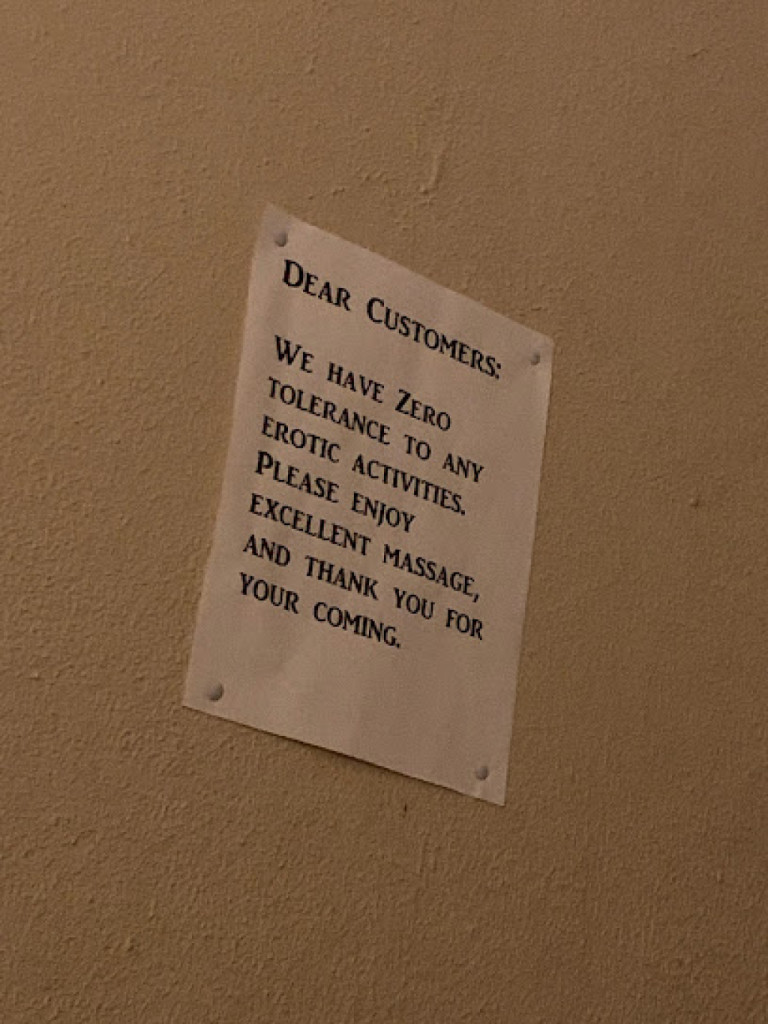 Dear Customers:
We have Zero
tolerance to any
erotic activities.
Please enjoy
excellent massage,
and thank you for
your coming.